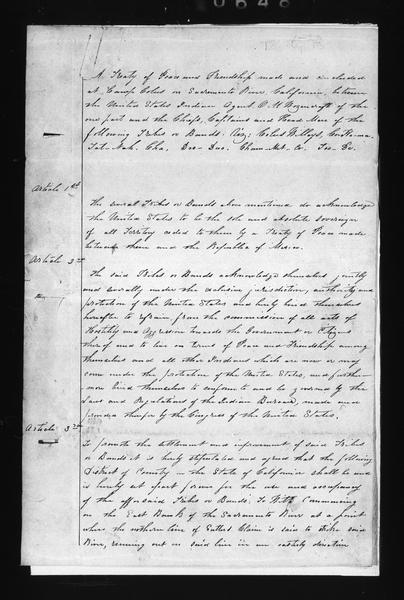 0648
A Treaty of Peace and Friendship made and concluded
at Camp Colus on Sacramento River, California, between
the United States Indian Agent O. M. Wozencraft of the
one part and the Chiefs, Captains and Head Men of the
following Tribes or Bands. Viz; Colus, Willays,
Tat-Nah, Cha. Doc-Duc. Cham-Met-Co. Toc-De.
Article 1st
the several Tribes or Bands above mentioned do acknowledge
the United States to be the sole and absolute Sovereign
of all Territory ceded to them by a Treaty of Peace made
between them and the Republic of Mexico.
Article 2nd
The said Tribes or Bands acknowledge themselves jointly
and severally under the exclusive jurisdiction, authority and
protection of the United States and hereby bind themselves
hereafter to refrain from the commission of all acts of
Hostility and Aggression towards the Government or Citizens
thereof and to live on terms of Peace and Friendship among
themselves and all other Indians which are now or may
come under the protection of the United States, and further-
more bind themselves to conform to and be governed by the
Laws and Regulations of the Indian Bureau, made and
provided therefor by the Congress of the United States.
Article 3rd
To promote the settlement and improvement of said Tribes
or Bands it is hereby stipulated and agreed that the following
District of Country in the State of California shall be and
is hereby set apart forever for the use and occupancy
of the aforesaid Tribes or Bands. To Wit Commencing
on the East Bank of the Sacramento River at a point
where the northern line of Sutter's Claim is said to strike said
River, running out on said line in an easterly direction